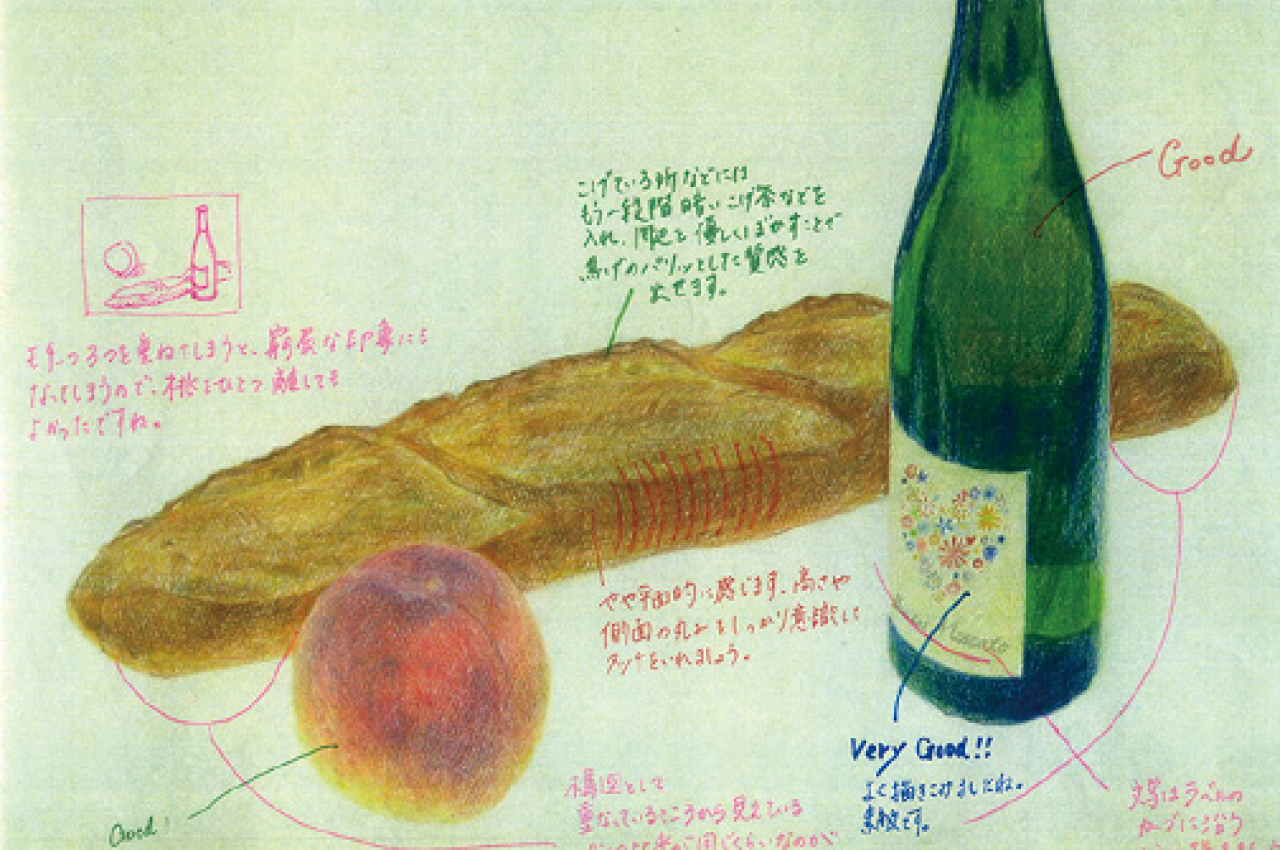 Good
こげている所などには
もう一段階暗いこげ茶などを
入れ、周囲と優しくぼかすことで
焦げのパリッとした質感を
出せます。
モチーフ3つを重ねてしまうと、窮屈な印象にも
なってしまうので、桃をひとつ離しても
よかったですね。
やや平面的に感じます。高さや
側面の丸みをしっかり意識して
タッチをいれましょう。
Moscato
Very Good!!
よく描きこめましたね。
素敵です。
Good!
構図として
重なっているところから見えている
パンの比率が同じくらいなのが
文字はラベルの
カーブに沿う